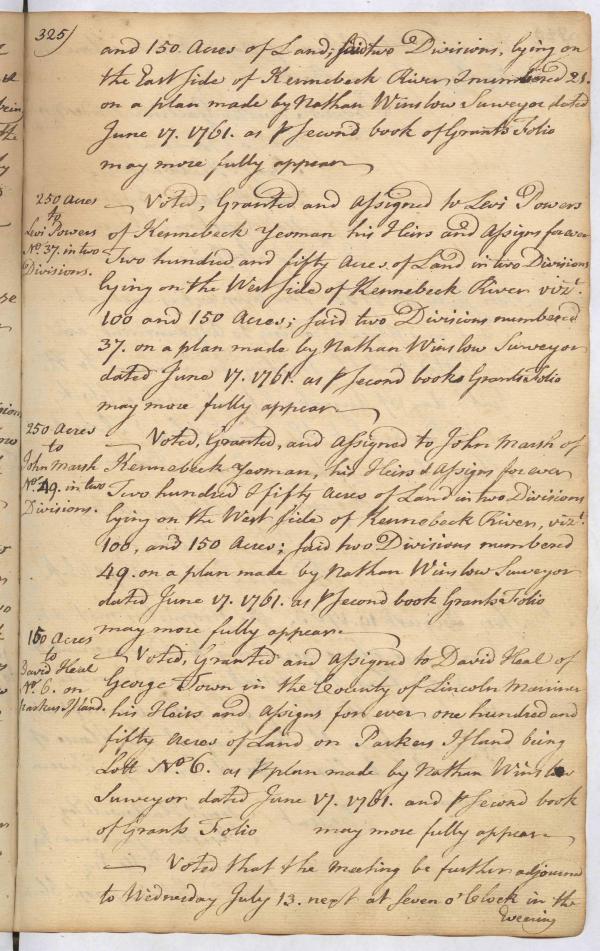 325)
and 150 Acres of Land; said two Divisions, lying on
the East side of Kennebeck River, numbered 21.
on a plan made by Nathan Winslow Surveyor dated
June 17. 1761. as ⅌ Second book of Grants Folio
may more fully appear
250 Acres
to
Levi Powers
No. 37. in two
Divisions.
— Voted, Granted and Assigned to Levi Powers
of Kennebeck Yeoman his Heirs and Assigns forever
Two hundred and fifty Acres of Land in two Divisions
lying on the West side of Kennebeck River vizt.
100 and 150 Acres; said two Divisions numbered
37. on a plan made by Nathan Winslow Surveyor
dated June 17. 1761. as ⅌ Second book Grants Folio
may more fully appear
250 Acres
to
John Marsh
No. 49. in two
Divisions.
— Voted, Granted, and Assigned to John Marsh of
Kennebeck Yeoman, his Heirs & Assigns for ever
Two hundred & fifty Acres of Land in two Divisions
lying on the West side of Kennebeck River, vizt.
100, and 150 Acres; said two Divisions numbered
49. on a plan made by Nathan Winslow Surveyor
dated June 17. 1761. as ⅌ Second book Grants Folio
may more fully appear.
150 Acres
to
David Heal
No. 6. on
Parkers Island.
— Voted, Granted and Assigned to David Heal of
George Town in the County of Lincoln Mariner
his Heirs and Assigns for ever one hundred and
fifty Acres of Land on Parkers Island being
Lott No. 6. as ⅌ plan made by Nathan Winslow
Surveyor dated June 17. 1761. and ⅌ Second book
of Grants Folio may more fully appear
— Voted that the meeting be further adjourned
to Wednesday July 13. next at Seven o'Clock in the
Evening